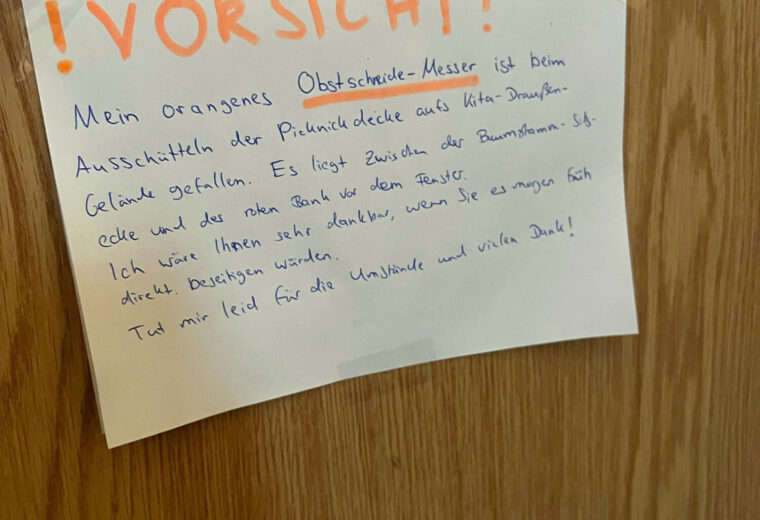 ! VORSICHT!
Mein orangenes Obstschneide-Messer ist beim
Ausschütteln der Picknickdecke aufs Kita-Draußen-
Gelände gefallen. Es liegt zwischen der Baumstamm-Sitz-
ecke und der roten Bank vor dem Fenster.
Ich wäre Ihnen sehr dankbar, wenn Sie es morgen früh
direkt beseitigen würden.
Tut mir leid für die Umstände und vielen Dank!